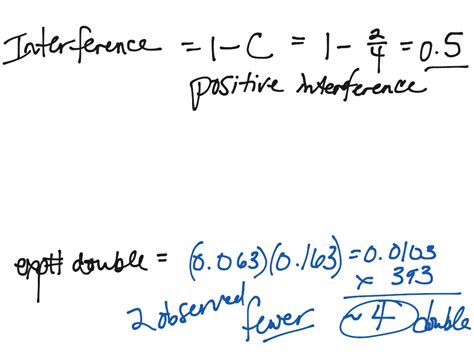 Interference = 1 - C = 1 - 2/4 = 0.5
positive interference
exptd double = (0.063)(0.163) = 0.0103
x 393
2 observed fewer ~ 4 double